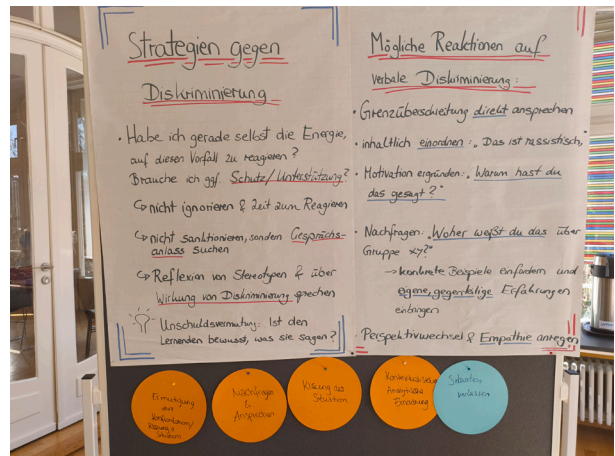 Strategien gegen
Diskriminierung
• Habe ich gerade selbst die Energie,
auf diesen Vorfall zu reagieren?
Brauche ich ggf. Schutz/Unterstützung?
↳ nicht ignorieren & Zeit zum Reagieren
↳ nicht sanktionieren, sondern Gesprächs-
anlass suchen
↳ Reflexion von Stereotypen & über
Wirkung von Diskriminierung sprechen
Unschuldsvermutung: Ist den
Lernenden bewusst, was sie sagen?
Mögliche Reaktionen auf
verbale Diskriminierung:
• Grenzüberschreitung direkt ansprechen
• inhaltlich einordnen: „Das ist rassistisch,"
• Motivation ergründen: „Warum hast du
das gesagt?"
• Nachfragen: „Woher weißt du das über
Gruppe xy?"
→ konkrete Beispiele einfordern und
eigene, gegenteilige Erfahrungen
einbringen
• Perspektivwechsel & Empathie anregen
Ermutigung
zur
Konfrontation/
Klärung d.
Situation
Nachfragen
&
Ansprechen
Klärung der
Situation
Analytische
Einordnung
Situation
verlassen